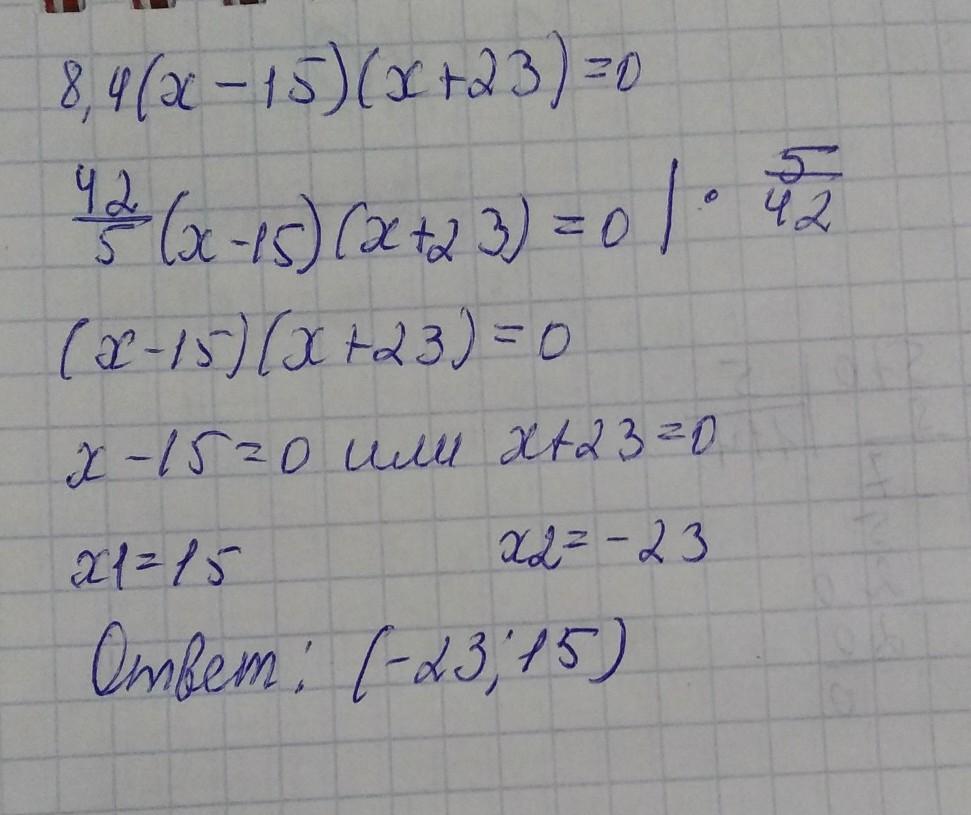 8,4(x-15)(x+23)=0
42/5 (x-15)(x+23)=0 | · 5/42
(x-15)(x+23)=0
x-15=0 или x+23=0
x1=15 x2=-23
Ответ: (-23;15)